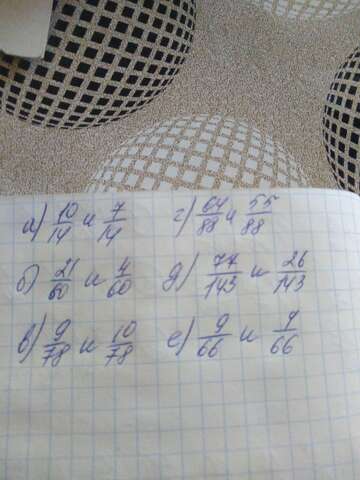 а) 10/14 и 7/14 г) 64/88 и 55/88
б) 21/60 и 4/60 д) 77/143 и 26/143
в) 9/78 и 10/78 е) 9/66 и 7/66